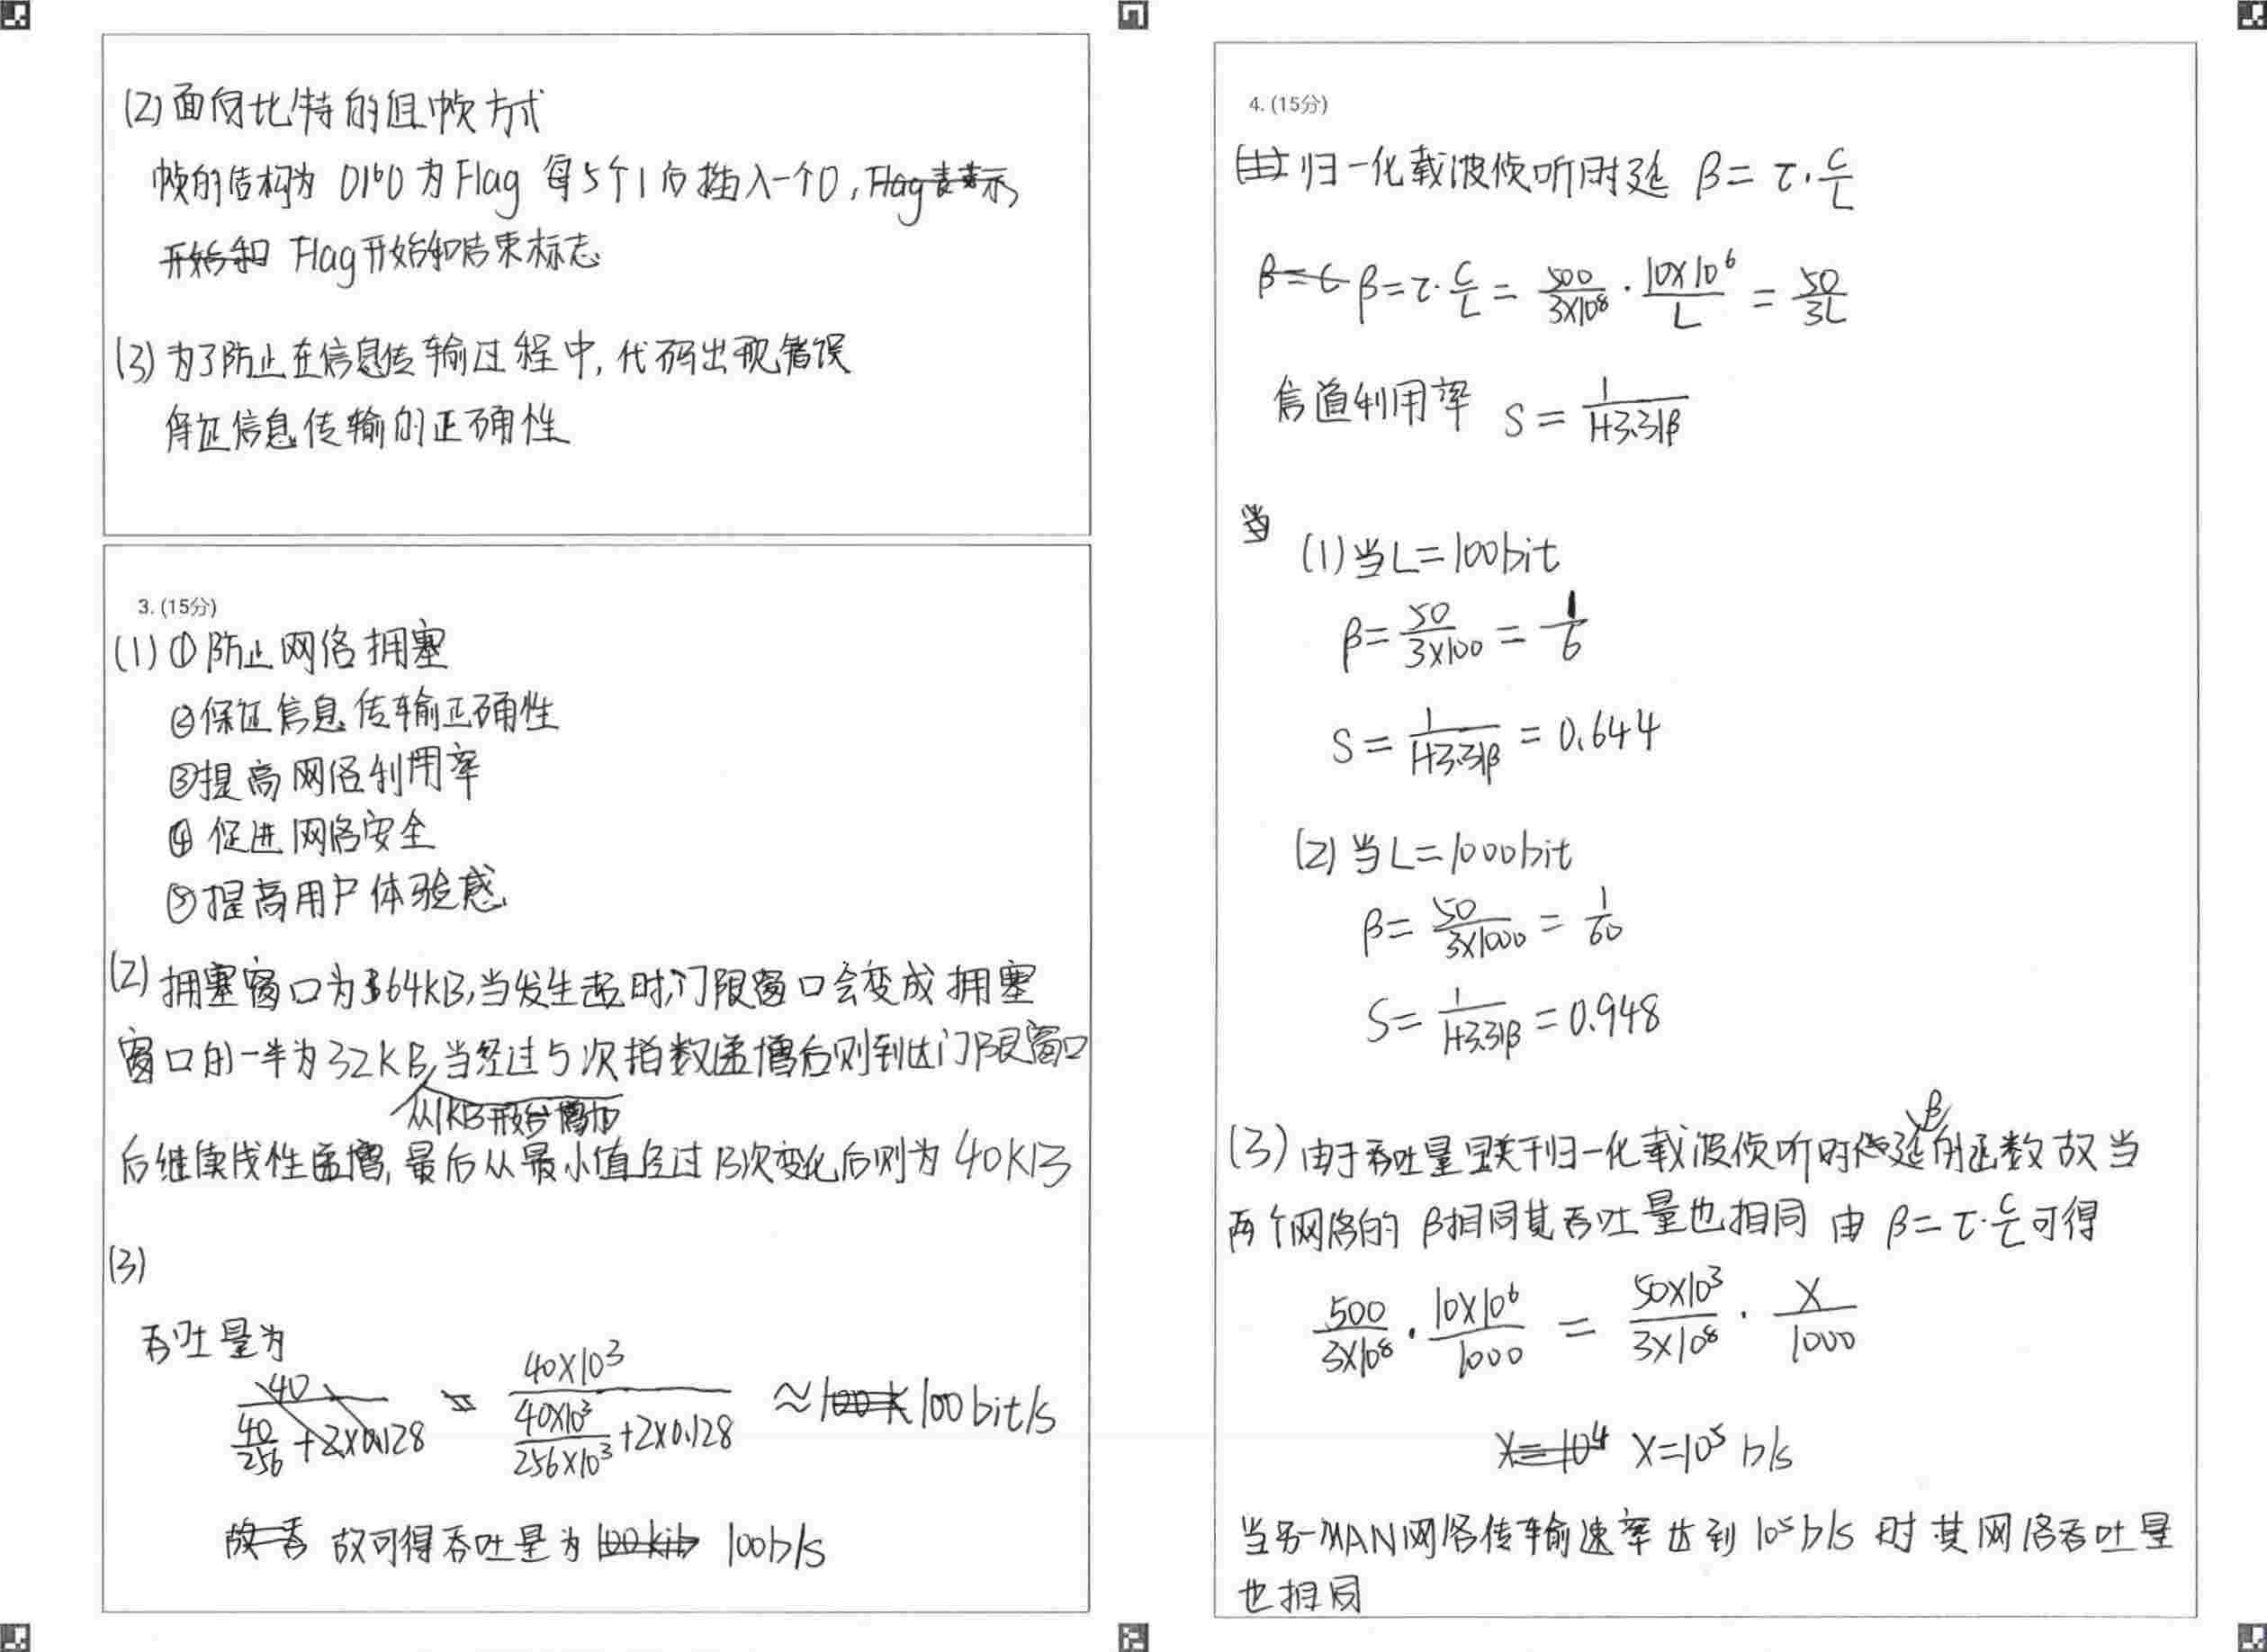 (2) 面向比特的组帧方式
帧的结构为 01⁶0 为 Flag 每5个1后插入一个0, Flag表示
开始和 Flag开始和结束标志
(3) 为了防止在信息传输过程中, 代码出现错误
保证信息传输的正确性
3. (15分)
(1) ① 防止网络拥塞
② 保证信息传输正确性
③ 提高网络利用率
④ 促进网络安全
⑤ 提高用户体验感
(2) 拥塞窗口为64KB, 当发生超时, 门限窗口会变成拥塞
窗口的一半为32KB, 当经过5次指数递增后则到达门限窗口
从1KB开始增加
后继续线性递增, 最后从最小值经过13次变化后则为40KB
(3)
吞吐量为
40 / (40/256 + 2×0.128) = 40×10³ / (40×10³/256×10³ + 2×0.128) ≈ 100k 100bit/s
故吞 故可得吞吐量为 100kib 100b/s
4. (15分)
(由) 归一化载波侦听时延 β = τ·C/L
β=τ β=τ·C/L = 500/3×10⁸ · 10×10⁶/L = 50/3L
信道利用率 S = 1/1+3.31β
当
(1) 当L=100bit
β = 50/3×100 = 1/6
S = 1/1+3.31β = 0.644
(2) 当L=1000bit
β = 50/3×1000 = 1/60
S = 1/1+3.31β = 0.948
(3) 由于吞吐量是关于归一化载波侦听时延β的函数 故当
两个网络的 β相同其吞吐量也相同 由 β=τ·C/L 可得
500/3×10⁸ · 10×10⁶/1000 = 50×10³/3×10⁸ · X/1000
X=10⁴ X=10⁵ b/s
当另一MAN网络传输速率达到 10⁵b/s 时 其网络吞吐量
也相同